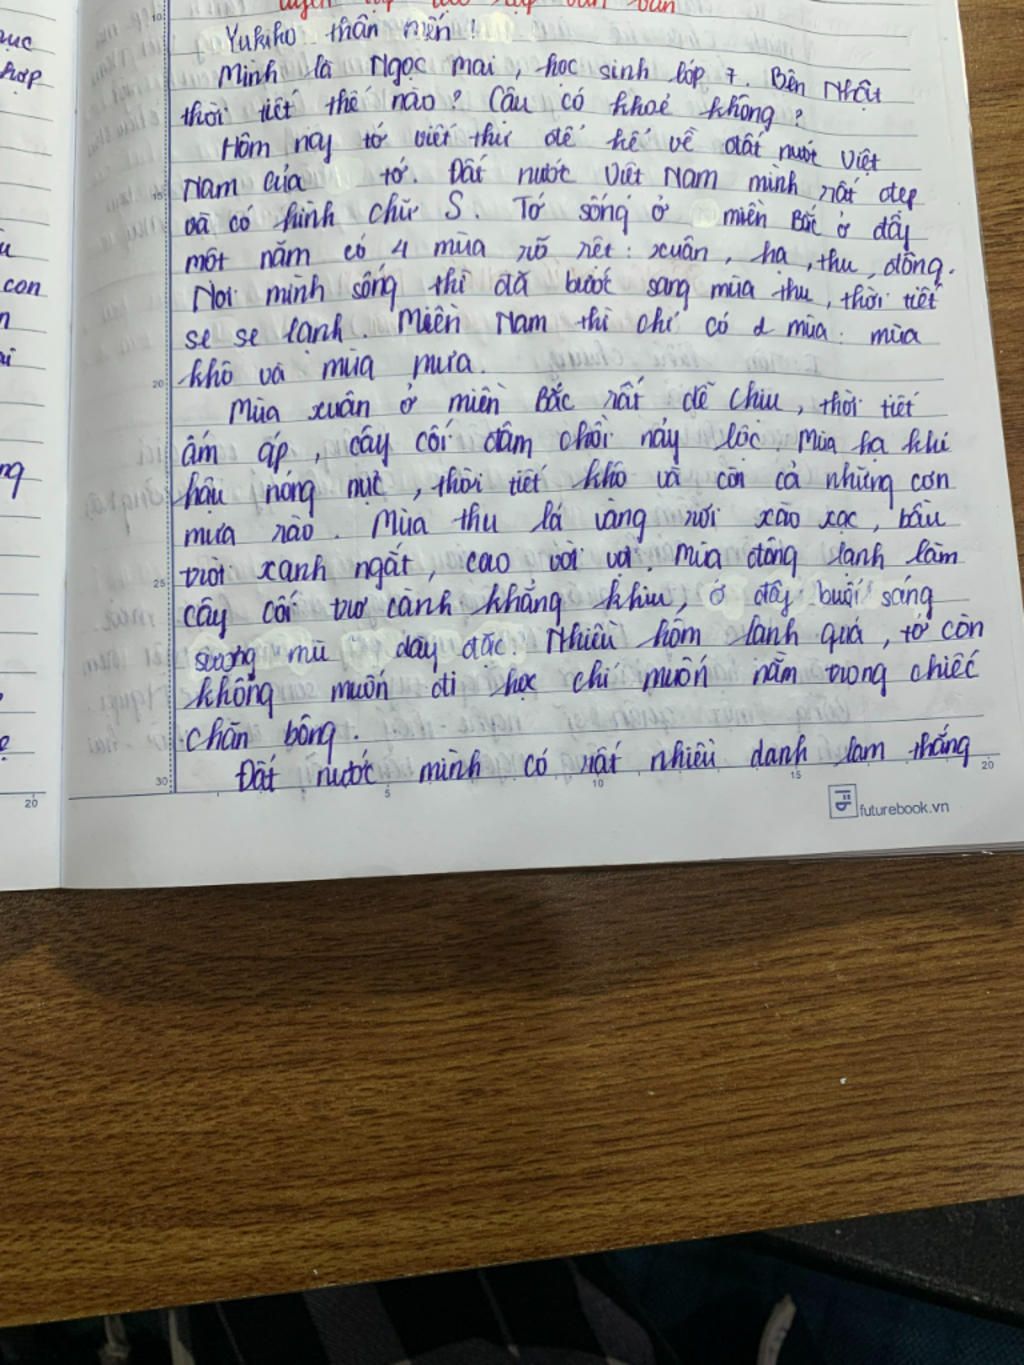 luyện tập tạo lập văn bản
Yukiko thân mến!
Mình là Ngọc Mai, học sinh lớp 7. Bên Nhật
thời tiết thế nào? Cậu có khoẻ không?
Hôm nay tớ viết thư để kể về đất nước Việt
Nam của tớ. Đất nước Việt Nam mình rất đẹp
và có hình chữ S. Tớ sống ở miền Bắc ở đây
một năm có 4 mùa rõ rệt: xuân, hạ, thu, đông.
Nơi mình sống thì đã bước sang mùa thu, thời tiết
se se lạnh. Miền Nam thì chỉ có 2 mùa: mùa
khô và mùa mưa.
Mùa xuân ở miền Bắc rất dễ chịu, thời tiết
ấm áp, cây cối đâm chồi nảy lộc. Mùa hạ khí
hậu nóng nực, thời tiết khô và còn cả những cơn
mưa rào. Mùa thu lá vàng rơi xào xạc, bầu
trời xanh ngắt, cao vời vợi. Mùa đông lạnh làm
cây cối trơ cành khẳng khiu, ở đây buổi sáng
sương mù dày đặc. Nhiều hôm lạnh quá, tớ còn
không muốn đi học chỉ muốn nằm trong chiếc
chăn bông.
Đất nước mình có rất nhiều danh lam thắng
futurebook.vn